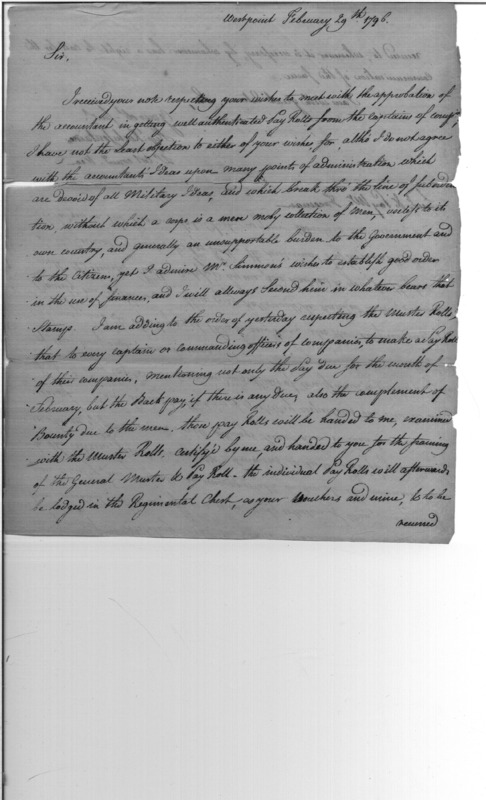 Westpoint February 29th. 1796.
Sir,
I received your note respecting your wishes to meet with the approbation of
the accountant in getting well authenticated Pay Rolls from the captains of comps.,
I have not the least objection to either of your wishes for altho' I do not agree
with the accountants Ideas upon many points of administration which
are devoid of all Military Idea, and which break thro' the line of subordina
tion without which a corps is a mere moby collection of men, useless to its
own country, and generally an unsupportable burden to the Government and
to the Citizen, yet I admire Mr. Simmon's wishes to establish good order
in the use of finances, and I will allways second him in whatever bears that
Stamp. I am adding to the order of yesterday respecting the Muster Rolls,
that to every captain or commanding officers of companies, to make a Pay Roll
of their companies, mentioning not only the Pay due for the month of
February, but the Back pay, if there is any due, also the complement of
Bounty due to the men, those pay Rolls will be handed to me, examined
with the Muster Rolls, certify'd by me, and handed to you for the framing
of the General Muster & Pay Roll - the individual Pay Rolls will afterwards
be lodged in the Regimental Chest, as your Vouchers and mine, & to be